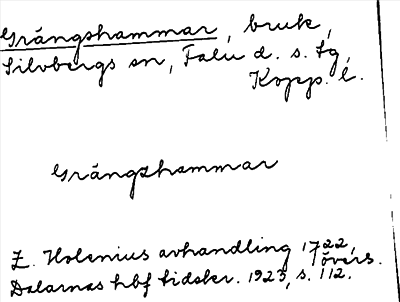 Grängshammar, bruk,
Silvbergs sn, Falu d. s. tg,
Kopp. l.
Grängshammar
Z. Holenius avhandling 1722,
övers.
Dalarnas hbf tidskr. 1923, s. 112.